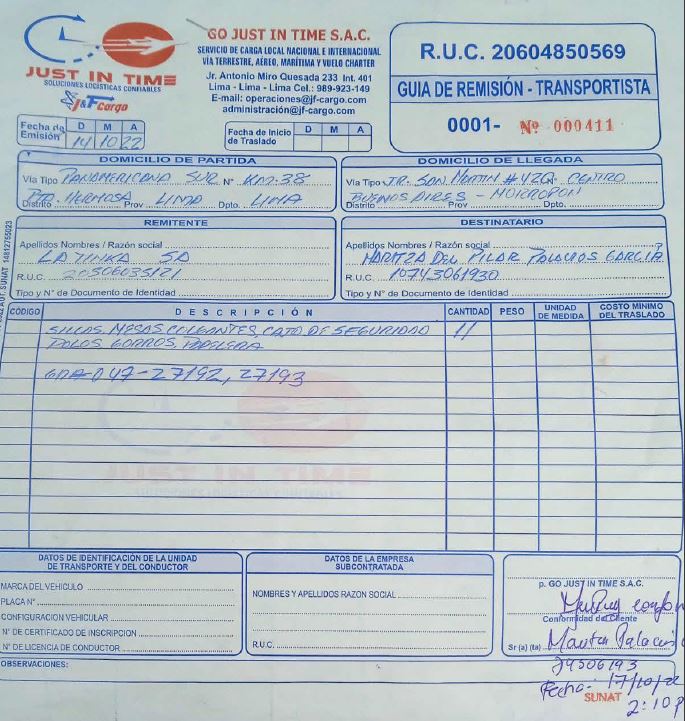 JUST IN TIME
SOLUCIONES LOGÍSTICAS CONFIABLES
J&F cargo
GO JUST IN TIME S.A.C.
SERVICIO DE CARGA LOCAL NACIONAL E INTERNACIONAL
VÍA TERRESTRE, AÉREO, MARÍTIMA Y VUELO CHARTER
Jr. Antonio Miro Quesada 233 Int. 401
Lima - Lima - Lima Cel.: 989-923-149
E-mail: operaciones@jf-cargo.com
administración@jf-cargo.com
R.U.C. 20604850569
GUIA DE REMISIÓN - TRANSPORTISTA
0001- Nº 000411
Fecha de Emisión D M A
14 10 22
Fecha de Inicio de Traslado D M A
DOMICILIO DE PARTIDA
Vía Tipo PANAMERICANA SUR N° KM-38
PTA. HERMOSA LIMA LIMA
Distrito Prov Dpto.
DOMICILIO DE LLEGADA
Vía Tipo JR. SAN MARTIN # 420 CENTRO
BUENOS AIRES - MORROPON
Distrito Prov Dpto.
REMITENTE
Apellidos Nombres / Razón social
LA TINKA SA
R.U.C. 20506035121
Tipo y N° de Documento de Identidad
DESTINATARIO
Apellidos Nombres / Razón social
MARITZA DEL PILAR PALACIOS GARCIA
R.U.C. 10743061930
Tipo y N° de Documento de Identidad
CÓDIGO DESCRIPCIÓN CANTIDAD PESO UNIDAD DE MEDIDA COSTO MÍNIMO DEL TRASLADO
SILLAS, MESAS COLGANTES, DE SEGURIDAD 11
POLOS GORROS, PAPELERA
047-27192, 27193
JUST IN TIME
DATOS DE IDENTIFICACIÓN DE LA UNIDAD
DE TRANSPORTE Y DEL CONDUCTOR
MARCA DEL VEHICULO
PLACA N°
CONFIGURACION VEHICULAR
N° DE CERTIFICADO DE INSCRIPCION
N° DE LICENCIA DE CONDUCTOR
DATOS DE LA EMPRESA
SUBCONTRATADA
NOMBRES Y APELLIDOS RAZON SOCIAL
R.U.C.
p. GO JUST IN TIME S.A.C.
Conformidad del Cliente
Sr (a) (ta)
OBSERVACIONES:
Fecha: 17/10/22
SUNAT
2:10 p